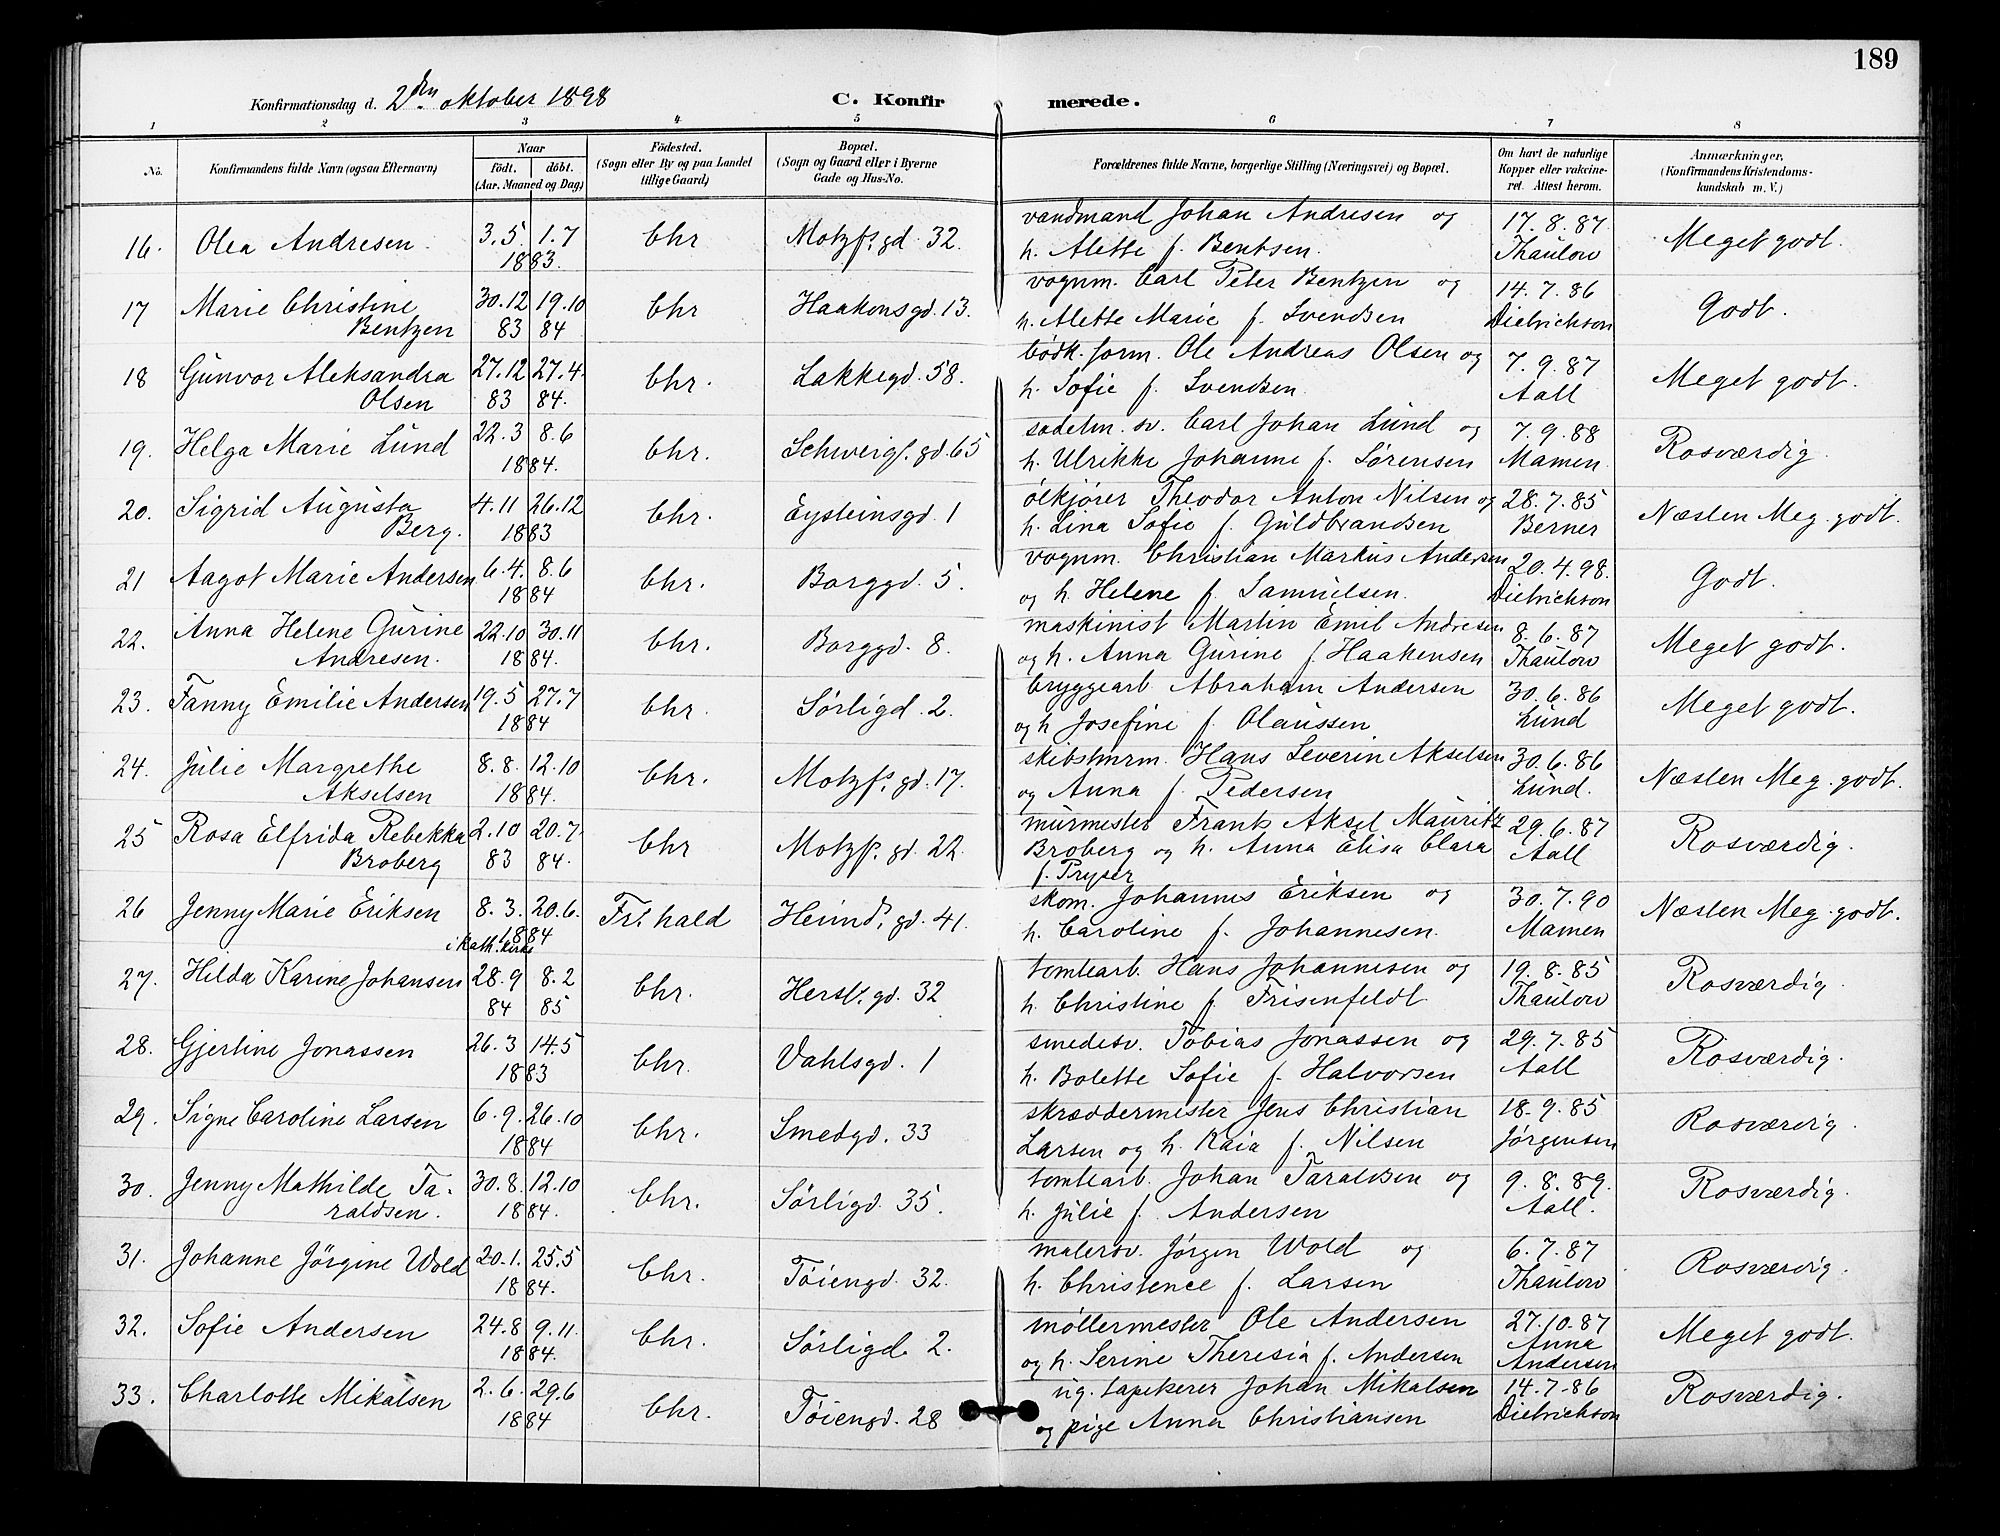 189
Konfirmationsdag d. 2den oktober 1898
C. Konfir merede.
1 2 3 4 5 6 7 8
No. Konfirmandens fulde Navn (ogsaa Efternavn) Naar født. døbt. (Aar, Maaned og Dag) Fødested. (Sogn eller By og paa Landet tillige Gaard) Bopæl. (Sogn og Gaard eller i Byerne Gade og Hus-No. Forældrenes fulde Navne, borgerlige Stilling (Næringsvei) og Bopæl. Om havt de naturlige Kopper eller vakcineret. Attest herom. Anmærkninger, (Konfirmandens Kristendomskundskab m. V.)
16. Olea Andresen. 3.5. 1.7 1883. Chr Motzfs. gd. 32. vandmand Johan Andresen og
h. Alette f. Bentsen. 17.8.87 Thaulow Meget godt.
17 Marie Christine Bentzen 30.12 83 19.10 84 Chr Haakonsgd. 13. vognm. Carl Peter Bentzen og
h. Alette Marie f. Svendsen 14.7.86 Dietrichson Godt.
18 Gunvor Aleksandra Olsen 27.12 83 27.4. 84. Chr. Lakkegd. 58. bødk. form. Ole Andreas Olsen og
h. Sofie f. Svendsen. 7.9.87 Aall Meget godt.
19. Helga Marie Lund 22.3 8.6 1884. Chr. Schweigs. gd. 65 sadelm. sv. Carl Johan Lund og
h. Ulrikke Johanne f. Sørensen 7.9.88 Mamen. Rosværdig.
20. Sigrid Augusta Berg. 4.11 26.12 1883 Chr. Eysteinsgd. 1 ølkjører Theodor Anton Nilsen og
h. Lina Sofie f. Guldbrandsen 28.7.85 Berner Næsten Meg. godt.
21 Aagot Marie Andersen 6.4. 8.6 1884 Chr. Borggd. 5. vognm. Christian Markus Andersen
og h. Helene f. Samuelsen. 20.4.98. Dietrichson Godt.
22. Anna Helene Gurine Andresen. 22.10 30.11 1884. Chr. Borggd. 8. maskinist Martin Emil Andresen
og h. Anna Gurine f. Haakensen 8.6.87 Thaulow Meget godt.
23. Fanny Emilie Andersen 19.5 27.7 1884 Chr. Sørligd. 2. bryggearb. Abraham Andersen
og h Josefine f. Olaussen 30.6.86 Lund Meget godt.
24. Julie Margrethe Akselsen 8.8. 12.10 1884. Chr. Motzfs. gd. 17. Hans Severin Akselsen
og Anna f. Pedersen 30.6.86 Lund. Næsten Meg. godt.
25 Rosa Elfrida Rebekka Broberg 2.10 83 20.7 84. Chr Motzfs. gd. 22. murmester Frank Aksel Mauritz
Broberg og h. Anna Elisa Clara
f. Pryser 29.6.87 Aall Rosværdig.
26 Jenny Marie Eriksen 8.3. 20.6. 1884 i kath. kirke Fr.hald Heimds. gd. 41. skom. Johannes Eriksen og
h. Caroline f. Johannesen. 30.7.90 Mamen Næsten Meg. godt.
27. Hilda Karine Johansen 28.9 84 8.2 85 Chr. Hersl. gd. 32 tomtearb. Hans Johannesen og
h. Christine f. Frisenfeldt 19.8.85 Thaulow Rosværdig.
28. Gjertine Jonassen 26.3 14.5 1883 Chr. Vahlsgd. 1 smedesv. Tobias Jonassen og
h. Bolette Sofie f. Halvorsen 29.7.85 Aall Rosværdig.
29. Signe Caroline Larsen 6.9. 26.10 1884 Chr. Smedgd. 33 skræddermester Jens Christian
Larsen og h. Kaia f. Nilsen 18.9.85 Jørgensen Rosværdig.
30. Jenny Mathilde Ta-
raldsen. 30.8. 12.10 1884. Chr. Sørligd. 35. tomtearb. Johan Taraldsen og
h. Julie f. Andersen 9.8.89. Aall. Rosværdig.
31. Johanne Jørgine Wold 20.1. 25.5 1884. Chr. Tøiengd. 32. malersv. Jørgen Wold og
h. Christence f. Larsen 6.7.87 Thaulow Rosværdig.
32. Sofie Andersen 24.8 9.11. 1884. Chr. Sørligd. 2. møllermester Ole Andersen
og h. Serine Theresia f. Andersen 27.10.87 Anna Andersen Meget godt.
33. Charlotte Mikalsen 2.6. 29.6 1884 Chr. Tøiengd. 28 ug. tapetserer Johan Mikalsen
og pige Anna Christiansen 14.7.86 Dietrichson Rosværdig.